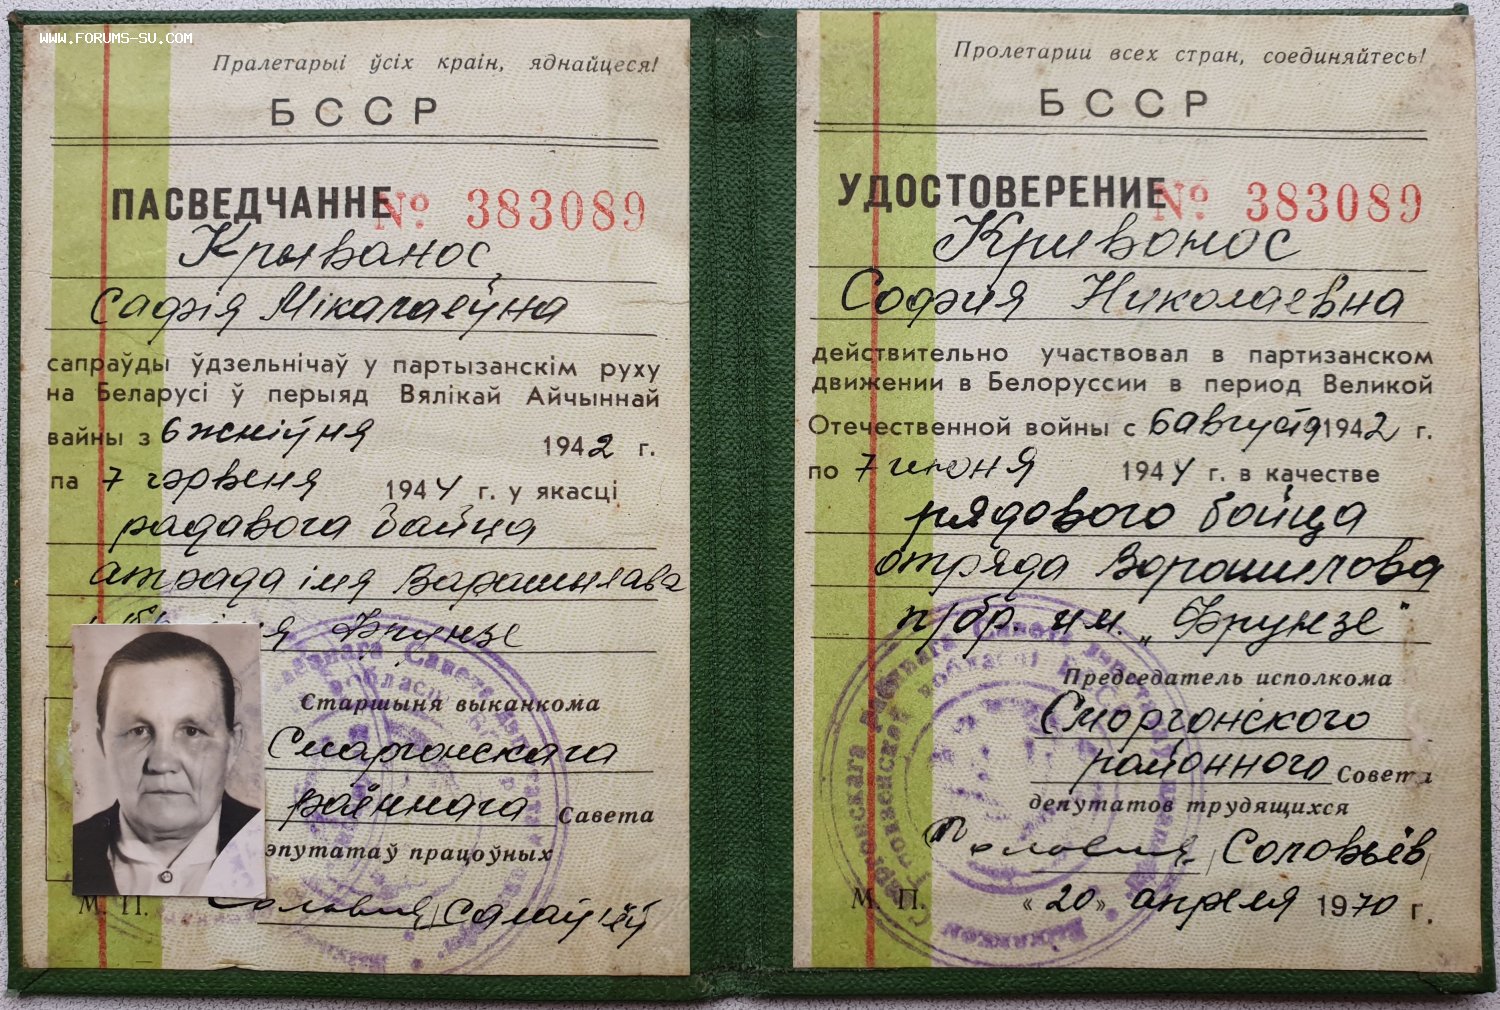 www.forums-su.com
Пралетарыі ўсіх краін, яднайцеся!
БССР
ПАСВЕДЧАННЕ № 383089
Крыванос
Сафія Мікалаеўна
сапраўды ўдзельнічаў у партызанскім руху
на Беларусі ў перыяд Вялікай Айчыннай
вайны з 6 жніўня 1942 г.
па 7 чэрвеня 1944 г. у якасці
радавога байца
атрада імя Варашылава
Фрунзе
Старшыня выканкома
Смаргонскага
раённага Савета
эпутатаў працоўных
М. П.
Салаўёў
Пролетарии всех стран, соединяйтесь!
БССР
УДОСТОВЕРЕНИЕ № 383089
Кривонос
София Николаевна
действительно участвовал в партизанском
движении в Белоруссии в период Великой
Отечественной войны с 6 августа 1942 г.
по 7 июня 1944 г. в качестве
рядового бойца
отряда Ворошилова
п/бр. им. „Фрунзе"
Председатель исполкома
Сморгонского
районного Совета
депутатов трудящихся
Соловьёв
М. П. «20» апреля 1970 г.